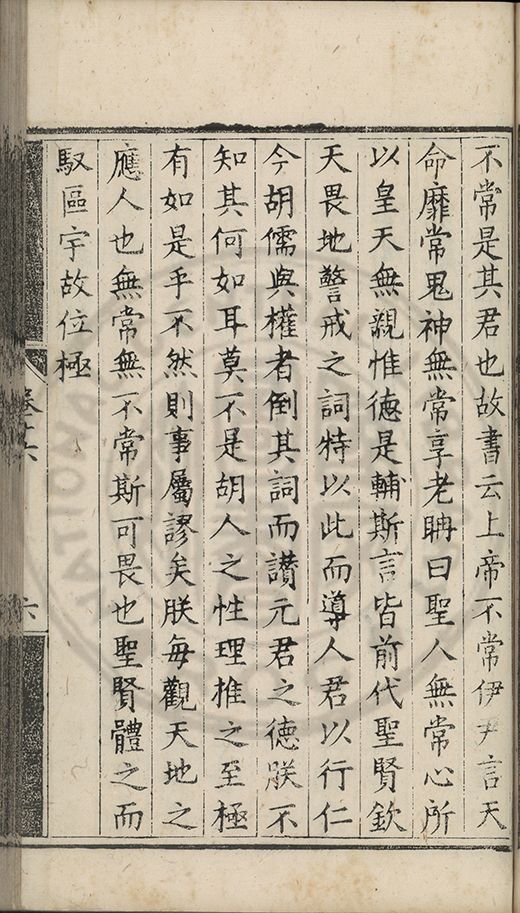 不常是其君也故書云上帝不常伊尹言天
命靡常鬼神無常享老聃曰聖人無常心所
以皇天無親惟德是輔斯言皆前代聖賢欽
天畏地警戒之詞特以此而導人君以行仁
今胡儒與權者倒其詞而讃元君之德朕不
知其何如耳莫不是胡人之性理推之至極
有如是乎不然則事屬謬矣朕毎觀天地之
應人也無常無不常斯可畏也聖賢體之而
馭區宇故位極
六